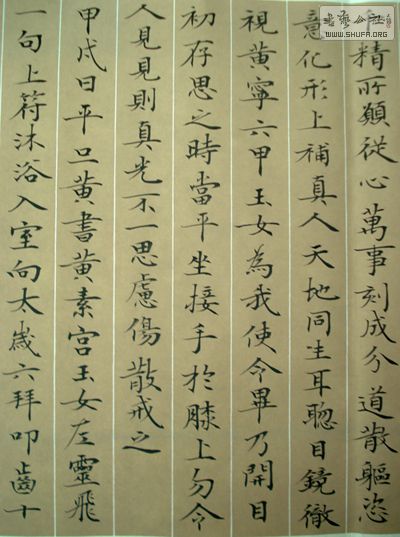 書藝公社
WWW.SHUFA.ORG
精所願從心萬事刻成分道散軀恣
意化形上補真人天地同生耳聰目鏡徹
視黃寧六甲玉女為我使令畢乃開目
初存思之時當平坐接手於膝上勿令
人見見則真光不一思慮傷散戒之
甲戌日平旦黃書黃素宮玉女左靈飛
一旬上符沐浴入室向太歲六拜叩齒十